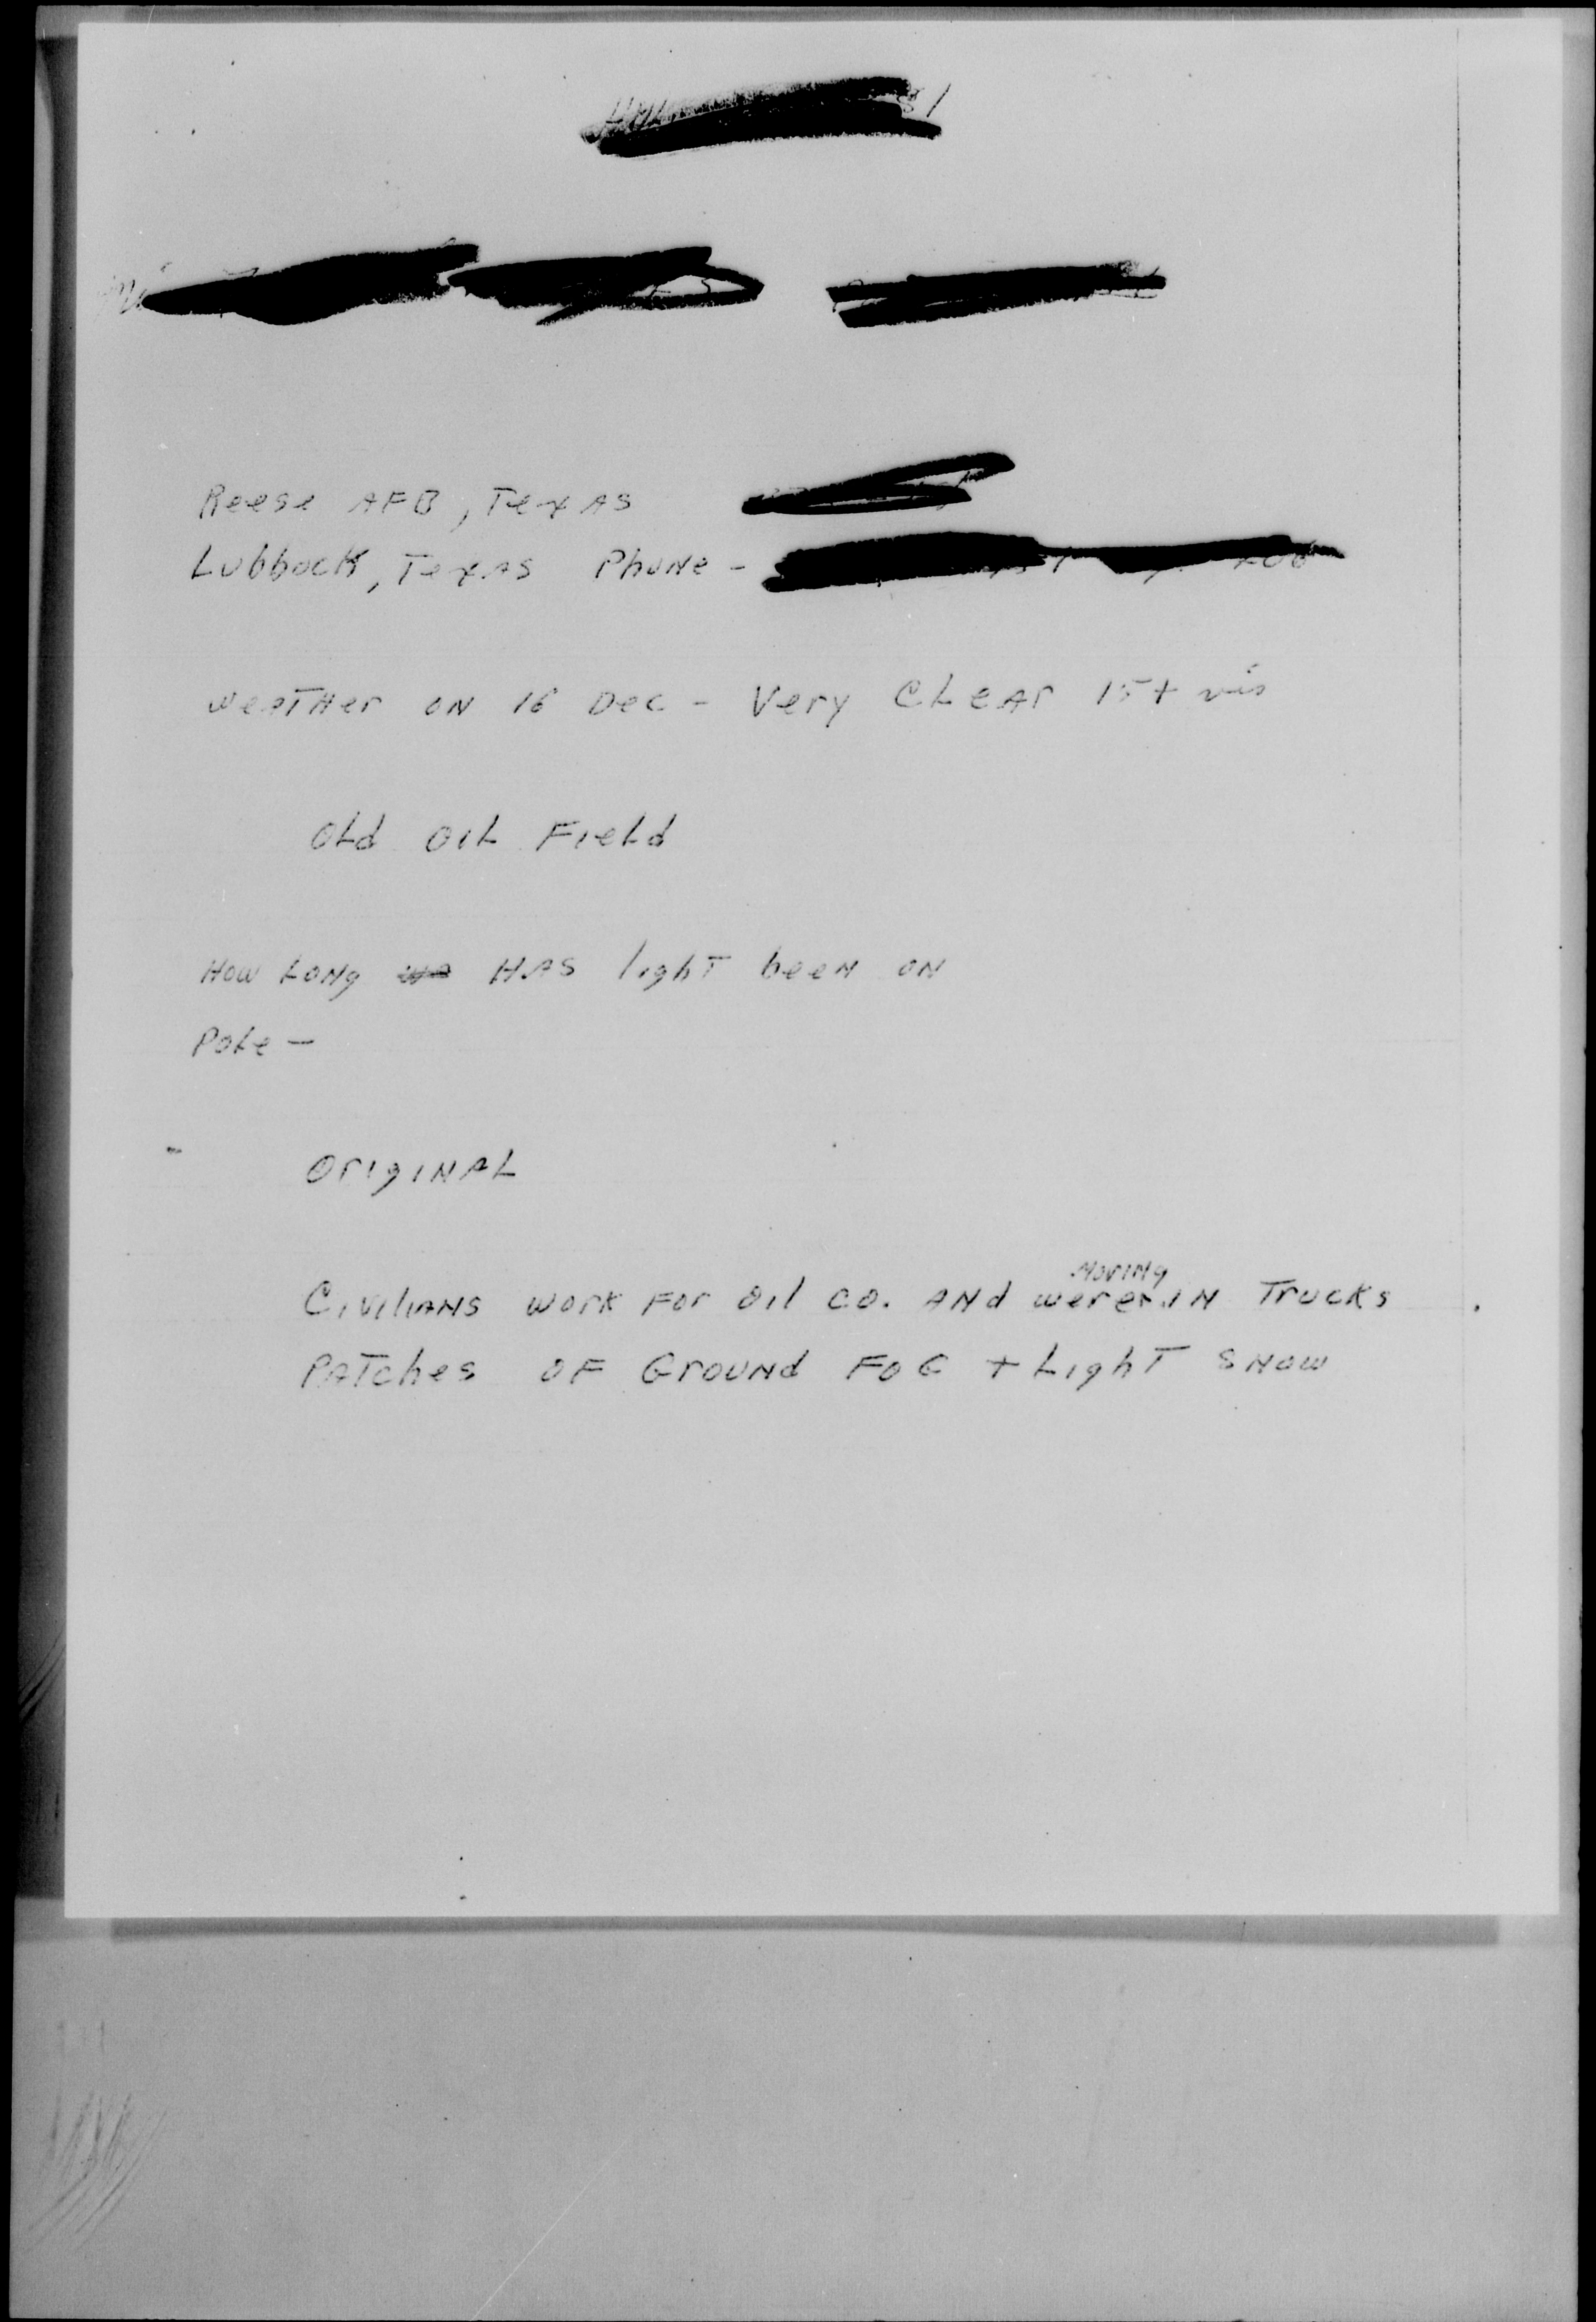 Reese AFB, Texas
Lubbock, Texas Phone -
Weather on 16 Dec - Very Clear 15+ vis
Old Oil Field
How Long Has light been on
Pole -
Original
Civilians work for Oil Co. and were moving in Trucks
Patches of Ground Fog + Light Snow